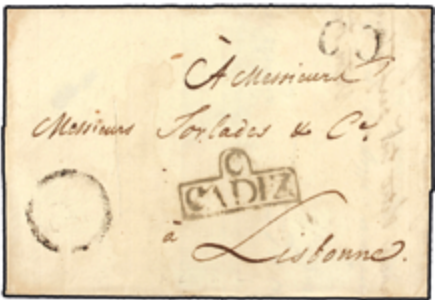 À
A Messieurs
Messieurs Sorlades & Cⁱᵉ.
C
CADIZ
à Lisbonne.